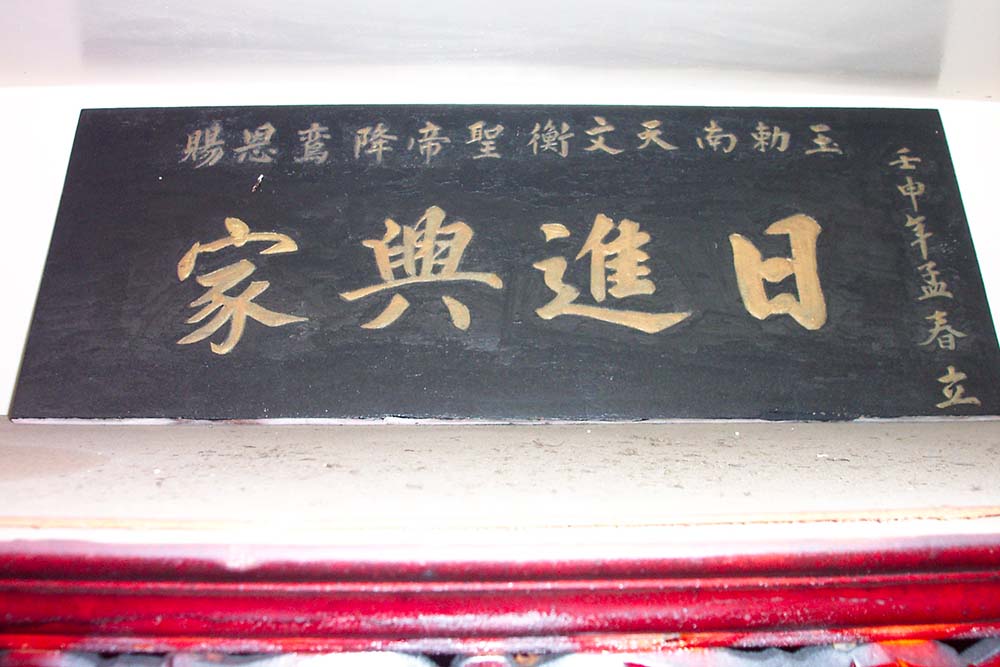 玉勅南天文衡聖帝降鸞恩賜
日進興家
壬申年孟春立